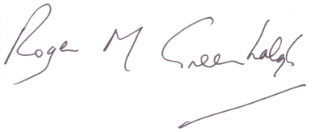 Roger M Greenhalgh